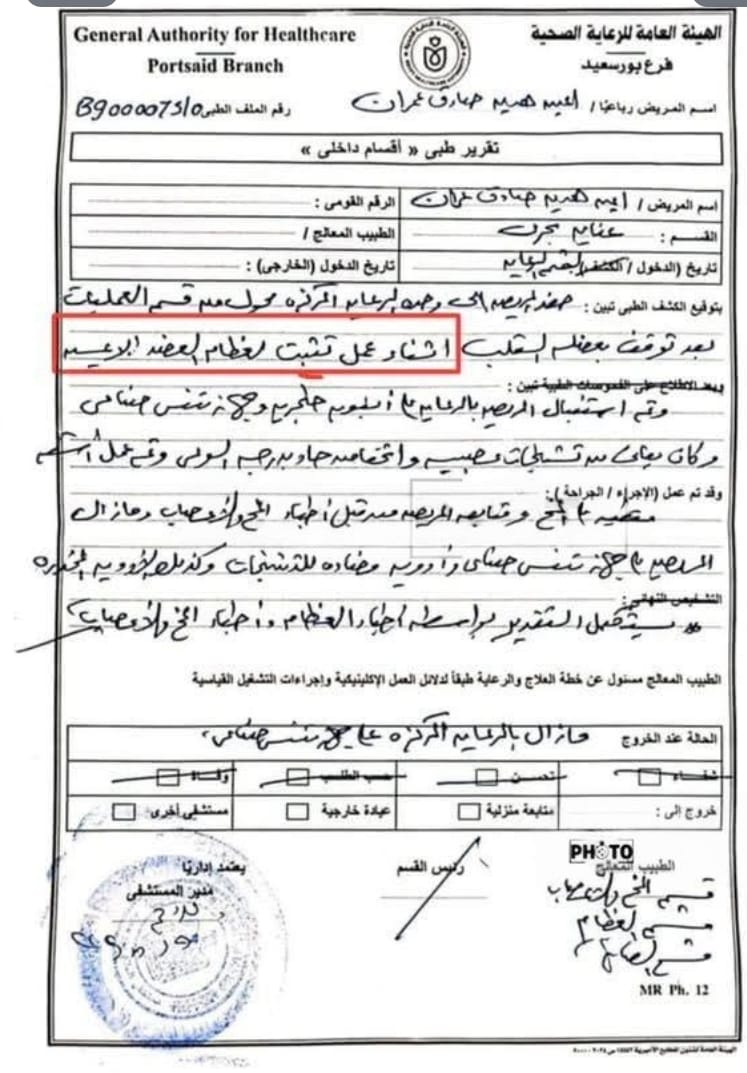 General Authority for Healthcare
Portsaid Branch
الهيئة العامة للرعاية الصحية
فرع بورسعيد
اسم المريض رباعيًا /
رقم الملف الطبي
تقرير طبي « أقسام داخلى »
اسم المريض /
الرقم القومى :
القسم : عنايه
الطبيب المعالج /
تاريخ (الدخول / الكشف)
تاريخ الدخول (الخارجى) :
بتوقيع الكشف الطبى تبين : حضر المريض الى وحده الرعايه المركزه محول من قسم العمليات
بعد توقف بعضله القلب اثناء عمل تثبيت لعظام العضد الايسر
وبعد الاطلاع على الفحوصات الطبية تبين :
وتم استقبال المريض بالرعايه على أنبوبه حنجريه وجهاز تنفس صناعى
وكان يعانى من تشنجات عصبيه وانخفاض حاد بدرجه الوعى وتم عمل أشعه
وقد تم عمل (الإجراء / الجراحة) :
مقطعيه على المخ ومتابعه المريض من قبل أطباء المخ والأعصاب ومازال
المريض على جهاز تنفس صناعى وأدويه مضاده للتشنجات وكذلك الأدويه المخدره
التشخيص النهائى :
* يستكمل التقرير بواسطه أطباء العظام وأطباء المخ والأعصاب
الطبيب المعالج مسئول عن خطة العلاج والرعاية طبقاً لدلائل العمل الإكلينيكية وإجراءات التشغيل القياسية
الحالة عند الخروج مازال بالرعايه المركزه على جهاز تنفس صناعى
شفاء
تحسن
حسب الطلب
وفاة
خروج إلى :
متابعة منزلية
عيادة خارجية
مستشفى أخرى
PHOTO
الطبيب المعالج
رئيس القسم
يعتمد إداريًا
مدير المستشفى
قسم المخ والأعصاب
قسم العظام
MR Ph. 12